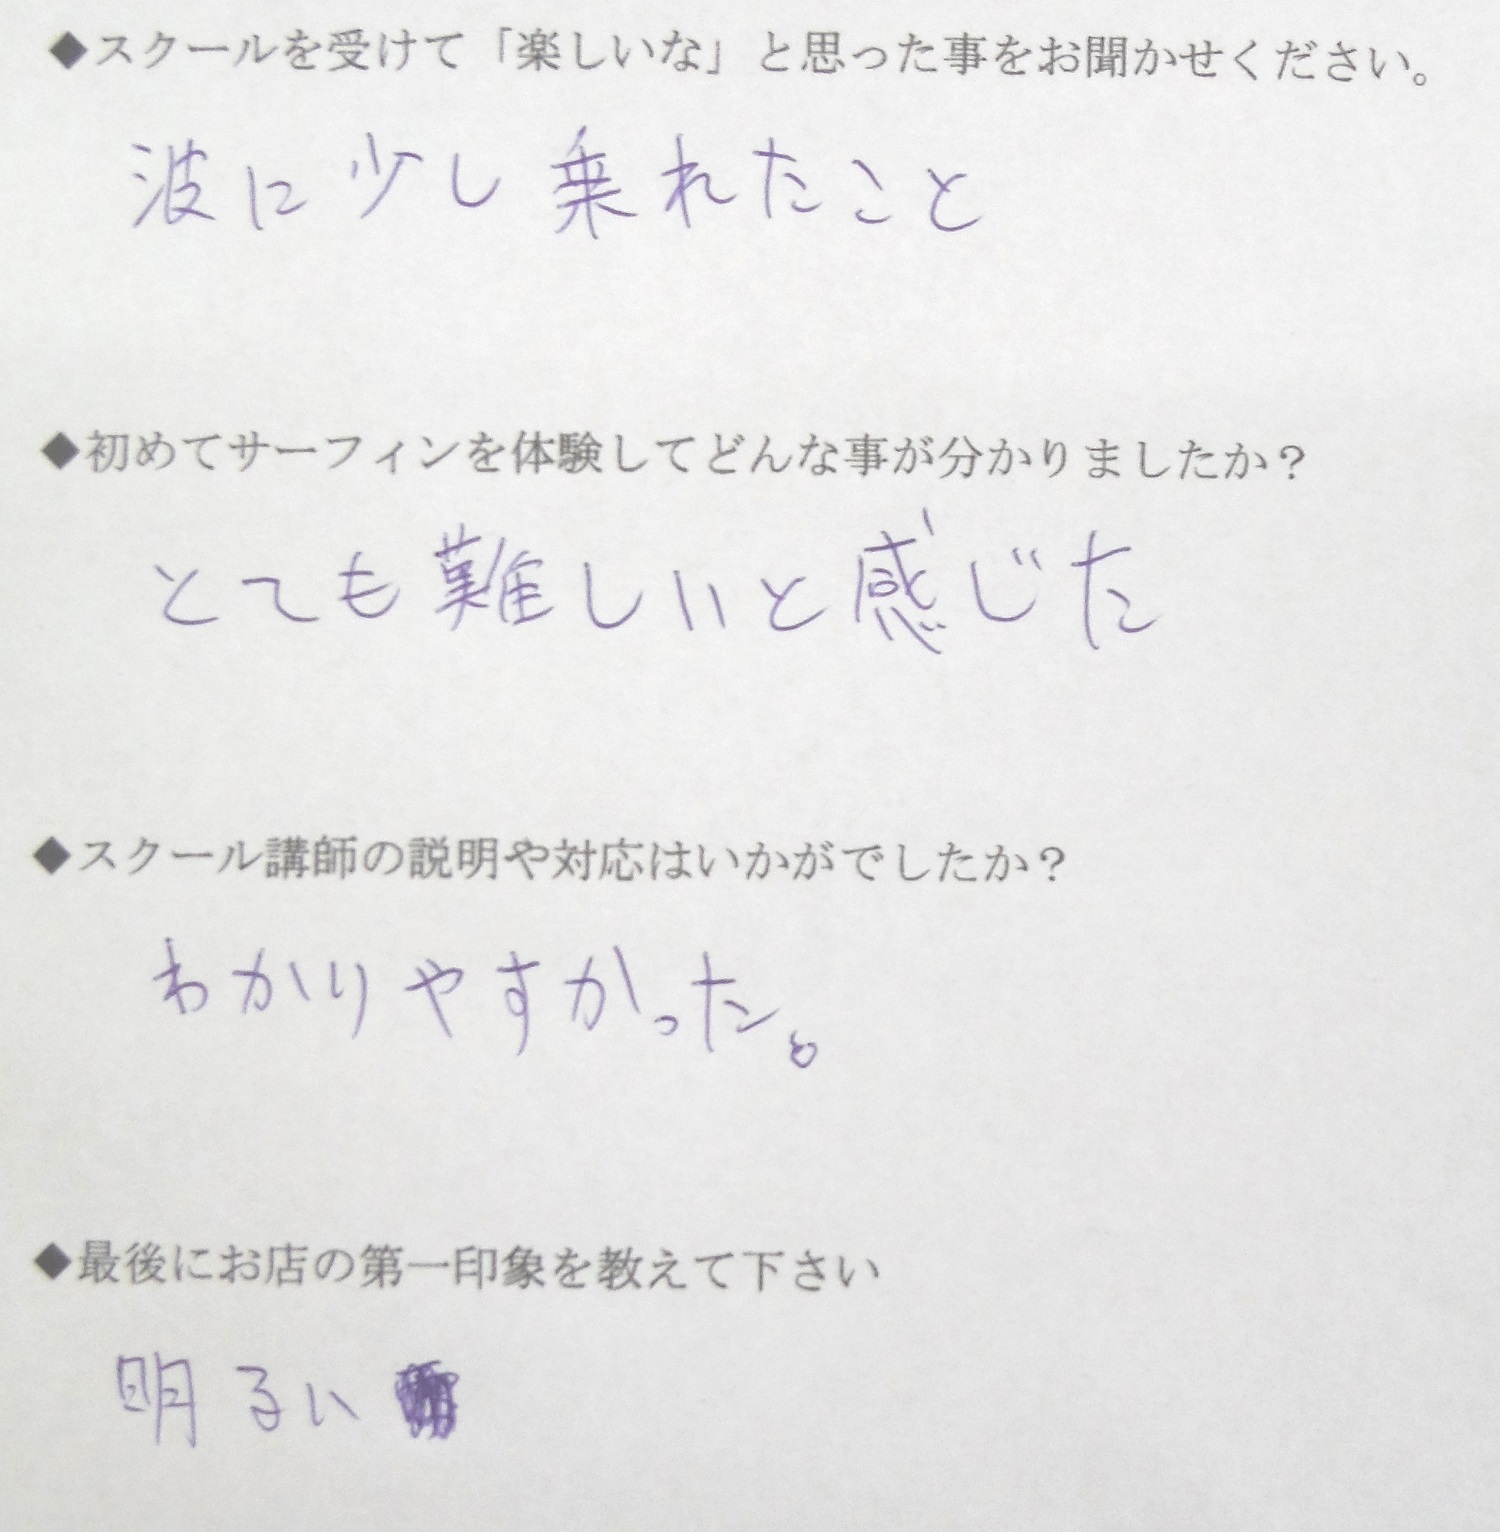 ◆スクールを受けて「楽しいな」と思った事をお聞かせください。
波に少し乗れたこと
◆初めてサーフィンを体験してどんな事が分かりましたか？
とても難しいと感じた
◆スクール講師の説明や対応はいかがでしたか？
わかりやすかった。
◆最後にお店の第一印象を教えて下さい
明るい